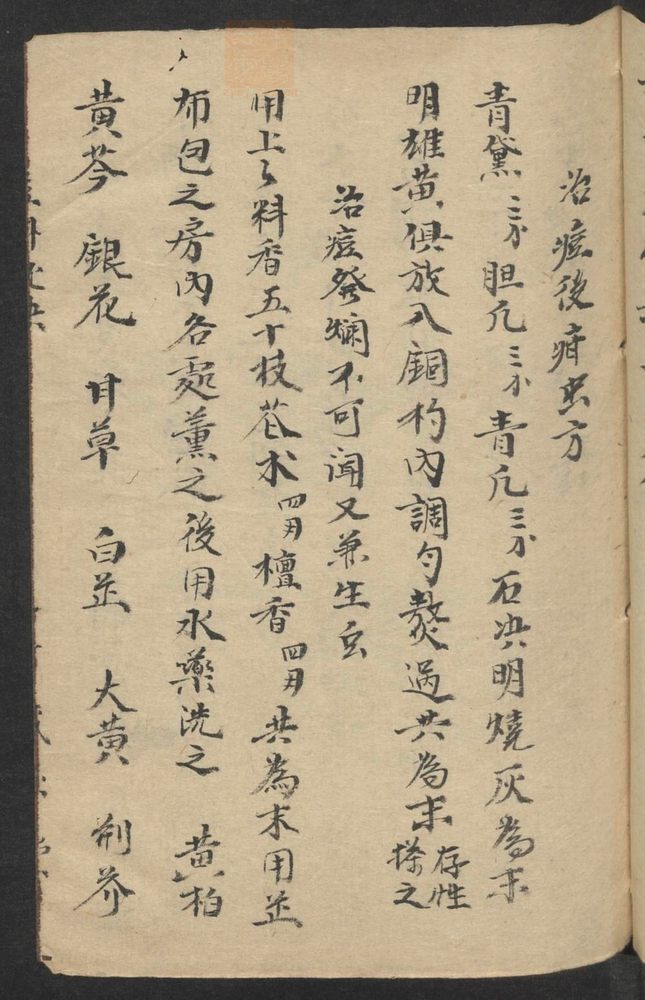 治痘後疳虫方
青黛三分胆凡三分青凡三分石決明燒灰為末
明雄黄俱放入銅杓内調勻熬過共為末存性搽之
治痘發爛不可闻又兼生虫
用上々料香五十枝苍术四両檀香四両共為末用
布包之房内各處薰之後用水藥洗之 黄柏
黄芩 銀花 甘草 白芷 大黄 荆芥